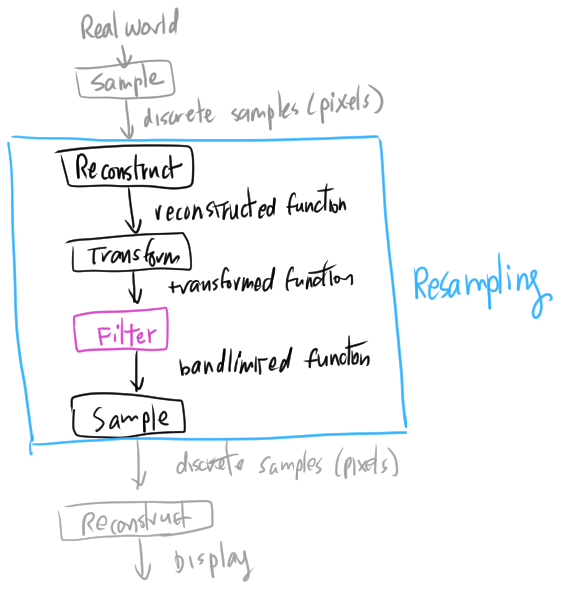 Real World
Sample
discrete samples (pixels)
Reconstruct
reconstructed function
Transform
transformed function
Resampling
Filter
bandlimited function
Sample
discrete samples (pixels)
Reconstruct
Display